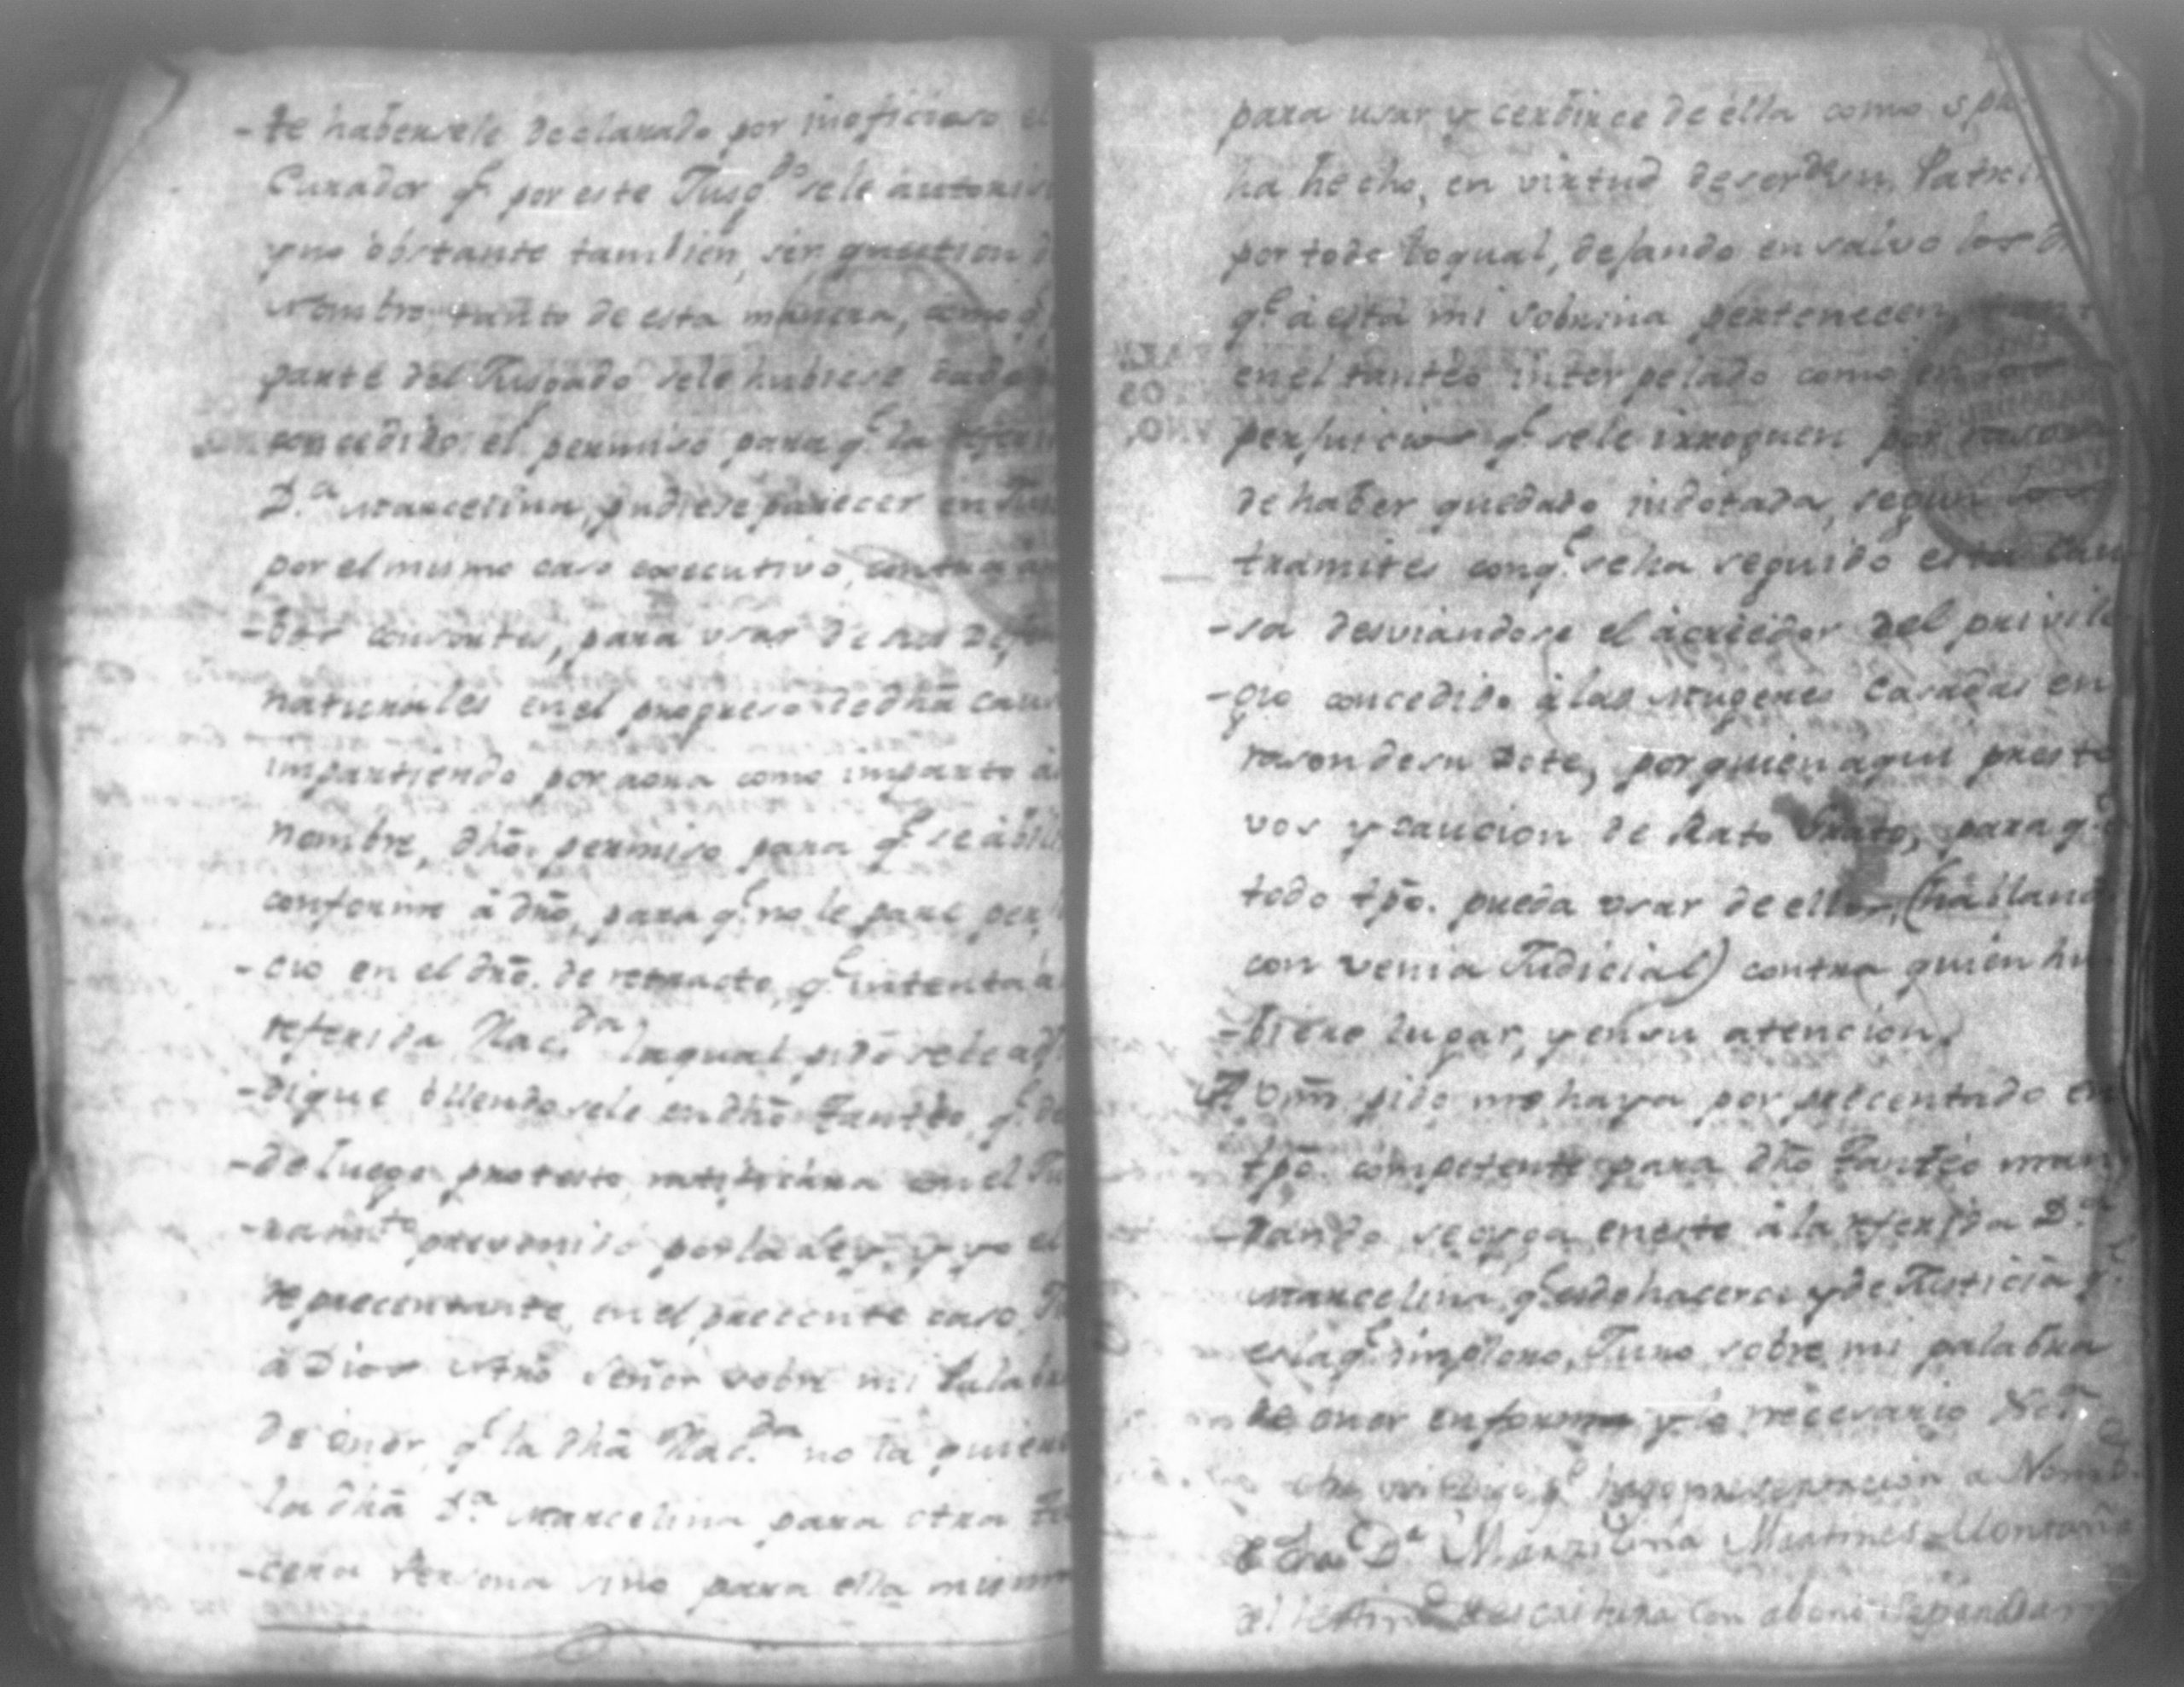 -te habersele declarado por inoficioso el
Curador q.e por este Jusg.do sele autoris
yno obstante tambien, ser question d
nombro tanto de esta manera, como p.
parte del Jusgado sele hubiese
concedido el permiso para q.e la referi
D.a Marcelina, pudiese parecer en Jui
por el mismo caso executivo, contra
-dos consortes, para usar de sus defen
naturales en el progreso de dhã caus
impartiendo por aora como imparto á
nombre, dhõ. permiso para q.e se abili
conforme á dño, para q.e no le pare per
-cio en el dño. de retracto, q.e intenta á
referida Hac.da laqual pido sele adj
-dique ollendosele en dhõ tantéo, q.e de
-de luego protesto, ratificára en el Ju
-ram.to prevenido por la Ley, y yo el
representante, en el precente caso, Ju
á Dios Ntrõ Señor sobre mi Palabr
de onor, q.e la dhã Hac.da no la quiere
la dhã D.a Marcelina para otra te
-cera Persona sino para ella mism
para usar y cerbirce de élla como
ha hecho, en virtud deser de su Patri
por todo loqual, dejando en salvo los
q.e á esta mi sobrina pertenecen,
en el tantéo interpelado como en
perjuicios q.e sele irroguen por rason
de haber quedado indotada, segun
tramites conq.e seha seguido esta Cau
-sa desviandose el acreedor del privile
-gio concedido á las Mugeres Casadas en
rason desu Dote, por quien aqui presto
vos y caucion de Rato Grato, para q.e
todo tpõ. pueda usar de ellos, (halland
con venia Judicial) contra quien hu
-biere lugar, y ensu atencion.
A Vm̃ pido me haya por precentado en
tpõ. competente para dhõ tantéo man
-dando se oyga eneste á la referida D.a
Marcelina q.e esde hacerce y de Justicia q.e
esla q.e imploro, Juro sobre mi palabra
de onor en forma y lo nececario &c.a
presentacion a Nomb.
D.a Marzelina Martines Montaña
con abono